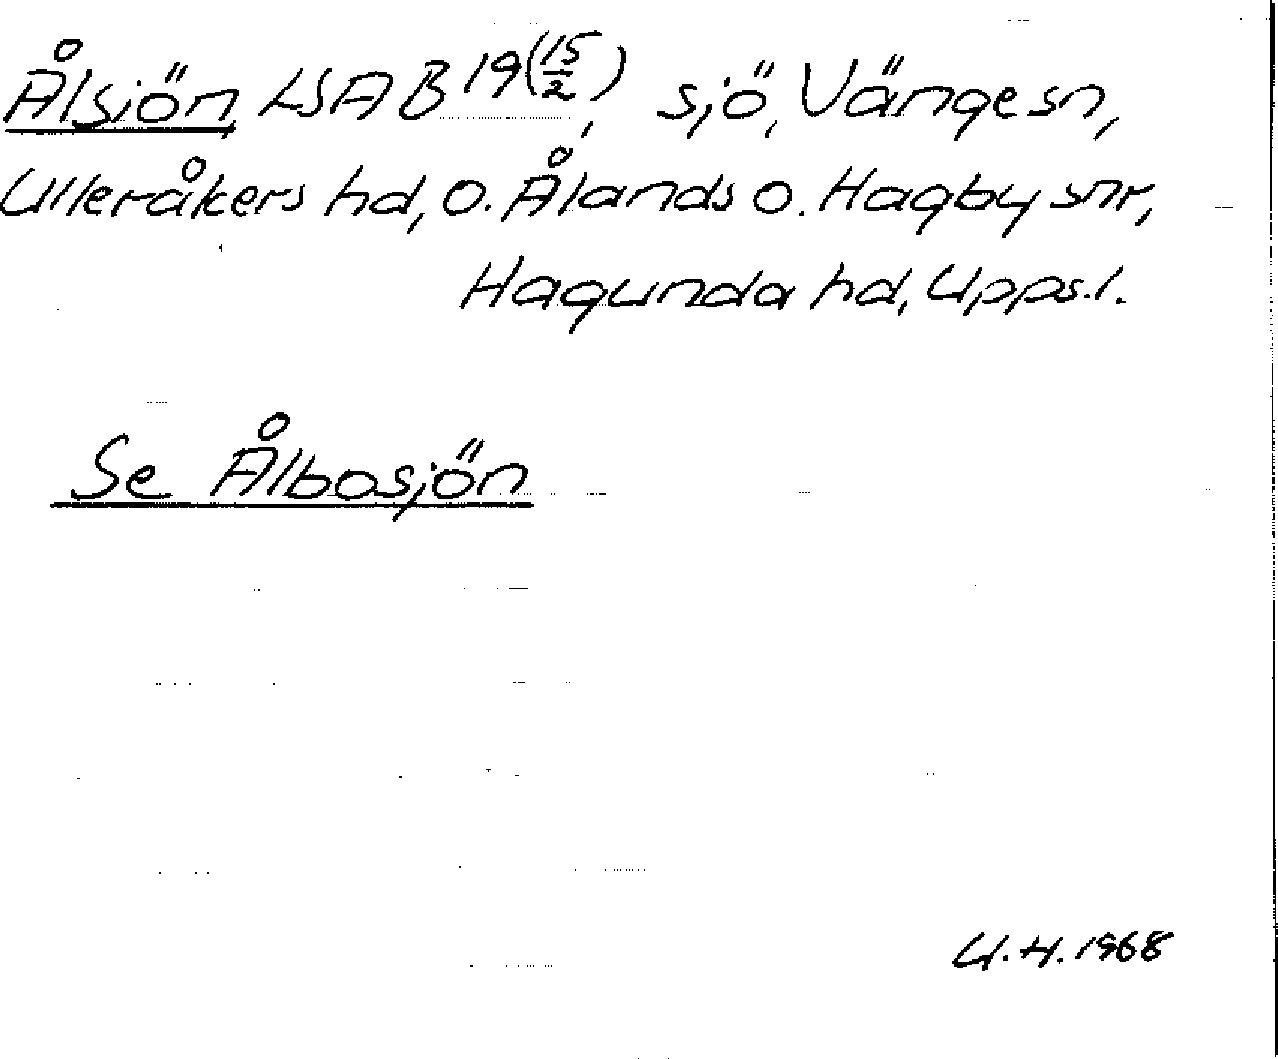 Ålsjön, LSA B 19 (15/2), sjö, Vänge sn,
Ulleråkers hd, o. Ålands o. Hagby snr,
Hagunda hd, Upps. l.
Se Ålbosjön
U. H. 1968